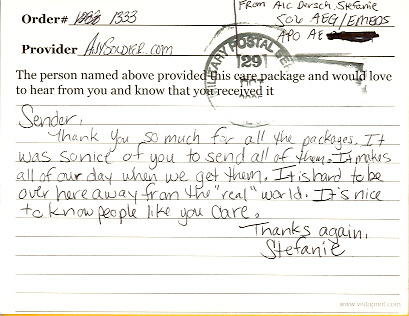 From A1C Dersch, Stefanie
Order# 1333
506 AEG/EMEDS
APO AE
Provider AnySoldier.com
MILITARY POSTAL
29
The person named above provided this care package and would love
to hear from you and know that you received it
Sender,
Thank you so much for all the packages. It
was so nice of you to send all of them. It makes
all of our day when we get them. It is hard to be
over here away from the "real" world. It's nice
to know people like you care.
Thanks again,
Stefanie
www.vistaprint.com